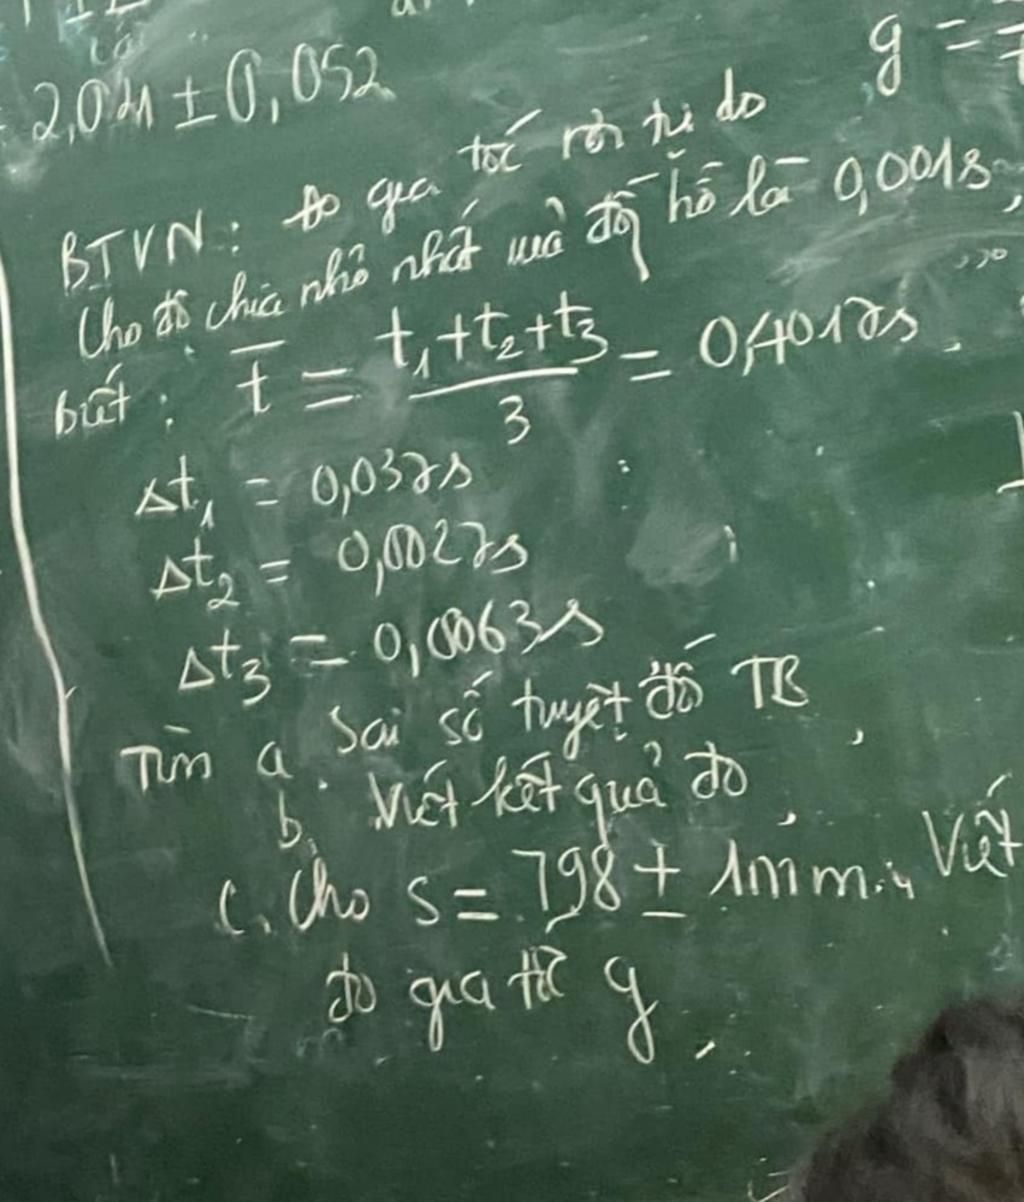 2,041 ± 0,052
g =
BTVN: đo gia tốc rơi tự do
Cho độ chia nhỏ nhất của đồng hồ là 0,001s,
biết: t̄ = (t₁+t₂+t₃)/3 = 0,4017s.
Δt₁ = 0,037s
Δt₂ = 0,0027s
Δt₃ = 0,0063s
Tìm a. Sai số tuyệt đối TB,
b. Viết kết quả đo,
c. Cho s = 798 ± 1mm. Viết
đo gia tốc g.